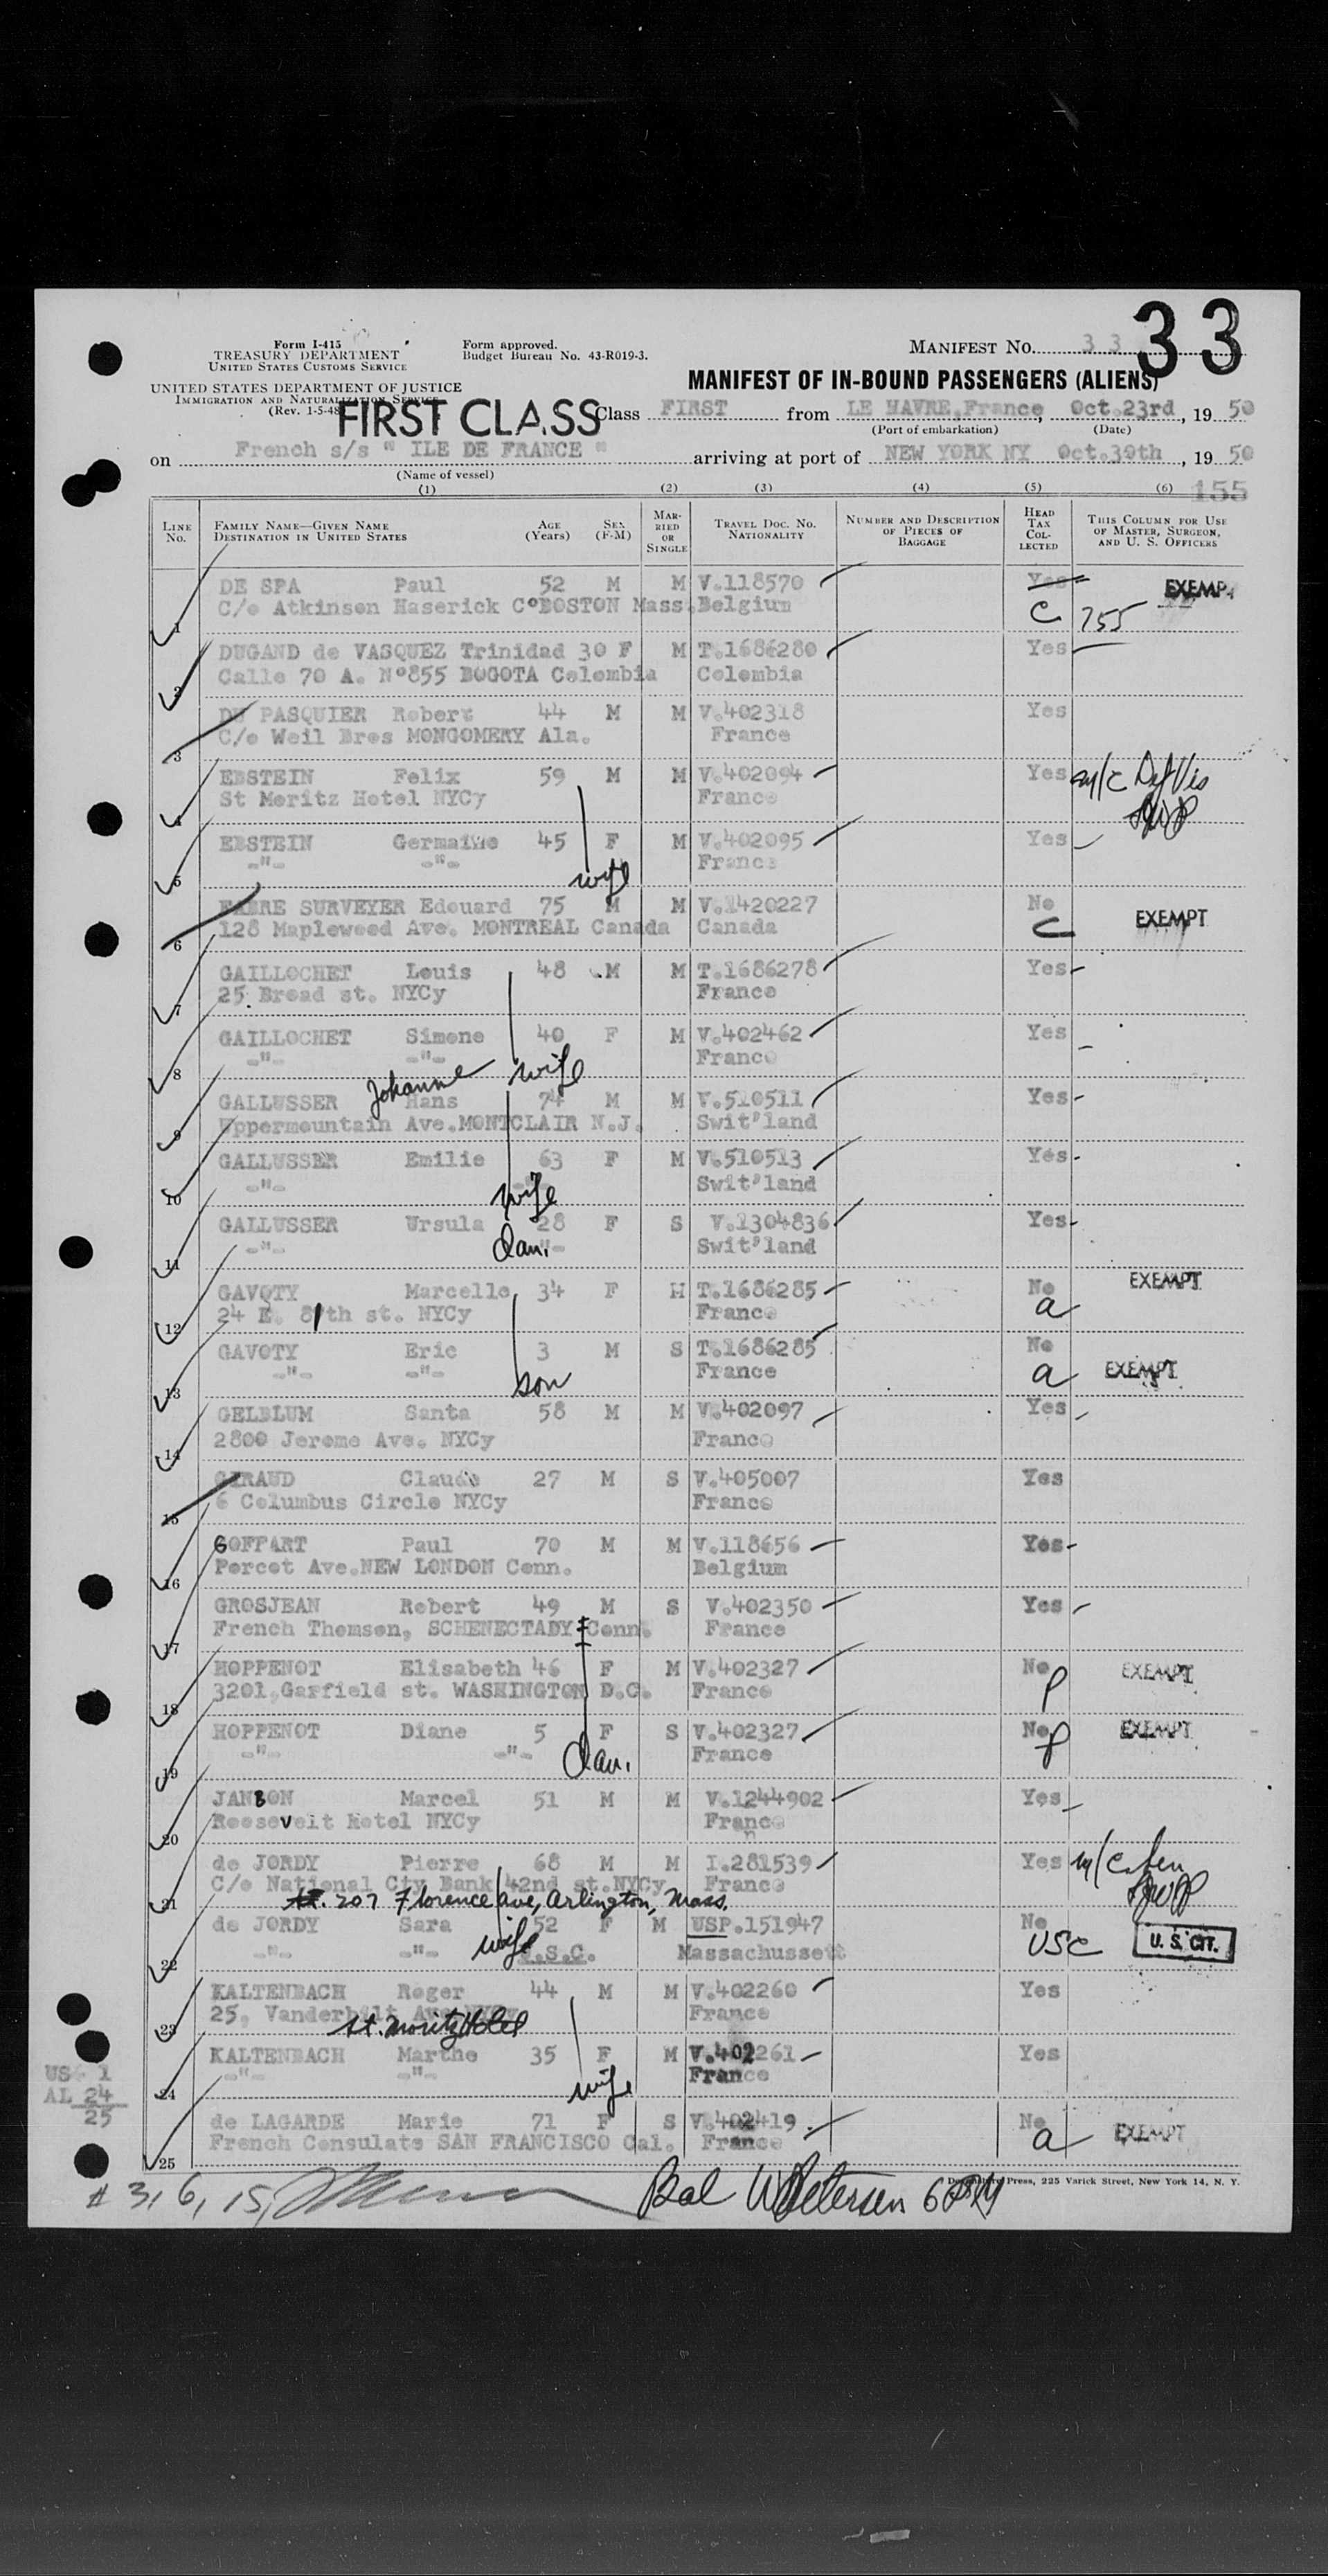 33
Form I-415
TREASURY DEPARTMENT
UNITED STATES CUSTOMS SERVICE
Form approved.
Budget Bureau No. 43-R019-3.
MANIFEST NO. 33
UNITED STATES DEPARTMENT OF JUSTICE
IMMIGRATION AND NATURALIZATION SERVICE
(Rev. 1-5-48)
MANIFEST OF IN-BOUND PASSENGERS (ALIENS)
FIRST CLASS
Class FIRST from LE HAVRE, France, Oct.23rd, 19 50
(Port of embarkation) (Date)
on French s/s " ILE DE FRANCE " arriving at port of NEW YORK NY Oct.30th, 19 50
(Name of vessel)
(1) (2) (3) (4) (5) (6) 155
LINE No. FAMILY NAME—GIVEN NAME DESTINATION IN UNITED STATES AGE (Years) SEX (F-M) MARRIED OR SINGLE TRAVEL DOC. NO. NATIONALITY NUMBER AND DESCRIPTION OF PIECES OF BAGGAGE HEAD TAX COLLECTED THIS COLUMN FOR USE OF MASTER, SURGEON, AND U. S. OFFICERS
1 DE SPA Paul 52 M M V.118570 Yes EXEMP.
C/o Atkinson Haserick C° BOSTON Mass. Belgium C 755
2 DUGAND de VASQUEZ Trinidad 30 F M T.1686280 Yes
Calle 70 A. N°855 BOGOTA Colombia Colombia
3 DU PASQUIER Robert 44 M M V.402318 Yes
C/o Weil Bros MONGOMERY Ala. France
4 EBSTEIN Felix 59 M M V.402094 Yes
St Moritz Hotel NYCy France
5 EBSTEIN Germaine 45 F M V.402095 Yes
-"- -"- wife France
6 FABRE SURVEYER Edouard 75 M M V.1420227 No
128 Maplewood Ave. MONTREAL Canada Canada C EXEMPT
7 GAILLOCHET Louis 48 M M T.1686278 Yes
25 Broad st. NYCy France
8 GAILLOCHET Simone 40 F M V.402462 Yes
-"- -"- wife France
Johanne
9 GALLUSSER Hans 74 M M V.510511 Yes
Uppermountain Ave.MONTCLAIR N.J. Swit'land
10 GALLUSSER Emilie 63 F M V.510513 Yes
-"- wife Swit'land
11 GALLUSSER Ursula 28 F S V.1304836 Yes
-"- dau. -"- Swit'land
12 GAVOTY Marcelle 34 F M T.1686285 No EXEMPT
24 E. 81th st. NYCy France a
13 GAVOTY Eric 3 M S T.1686285 No
-"- -"- son France a EXEMPT
14 GELBLUM Santa 58 M M V.402097 Yes
2800 Jerome Ave. NYCy France
15 GIRAUD Claude 27 M S V.405007 Yes
6 Columbus Circle NYCy France
16 GOFFART Paul 70 M M V.118656 Yes
Percot Ave.NEW LONDON Conn. Belgium
17 GROSJEAN Robert 49 M S V.402350 Yes
French Thomson, SCHENECTADY Conn. France
18 HOPPENOT Elisabeth 46 F M V.402327 No EXEMPT
3201,Garfield st. WASHINGTON D.C. France
19 HOPPENOT Diane 5 F S V.402327 No EXEMPT
-"- -"- dau. France
20 JANSON Marcel 51 M M V.1244902 Yes
Roosevelt Hotel NYCy France
21 de JORDY Pierre 68 M M I.281539 Yes
C/o National Cty Bank 42nd st.NYCy France
207 Florence ave, Arlington, Mass.
22 de JORDY Sara 52 F M USP.151947 No
-"- -"- wife U.S.C. Massachussett USC U. S. CIT.
23 KALTENBACH Roger 44 M M V.402260 Yes
25, Vanderbilt Ave NYCy France
St. Moritz Hotel
24 KALTENBACH Marthe 35 F M V.402261 Yes
-"- -"- wife France
US 1
AL 24
25
25 de LAGARDE Marie 71 F S V.402419 No
French Consulate SAN FRANCISCO Cal. France a EXEMPT
Press, 225 Varick Street, New York 14, N. Y.
# 3, 6, 15, Bal W Petersen